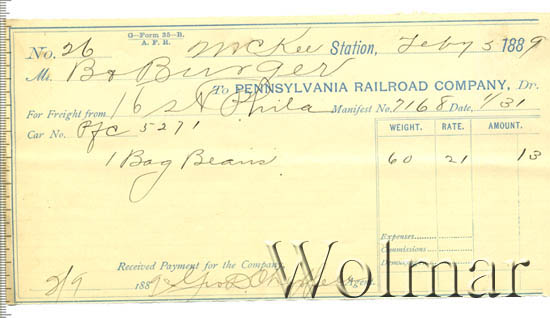 G—Form 35—B.
A. F. R.
No. 26 McKee Station, Feby 5 1889
M B & Burger
To PENNSYLVANIA RAILROAD COMPANY, Dr.
For Freight from 16 St Phila Manifest No. 7168 Date, 1/31
Car No. Pfc 5271
WEIGHT. RATE. AMOUNT.
1 Bag Beans 60 21 13
Expenses
Commissions
Received Payment for the Company,
2/9 188 Agent.
Wolmar